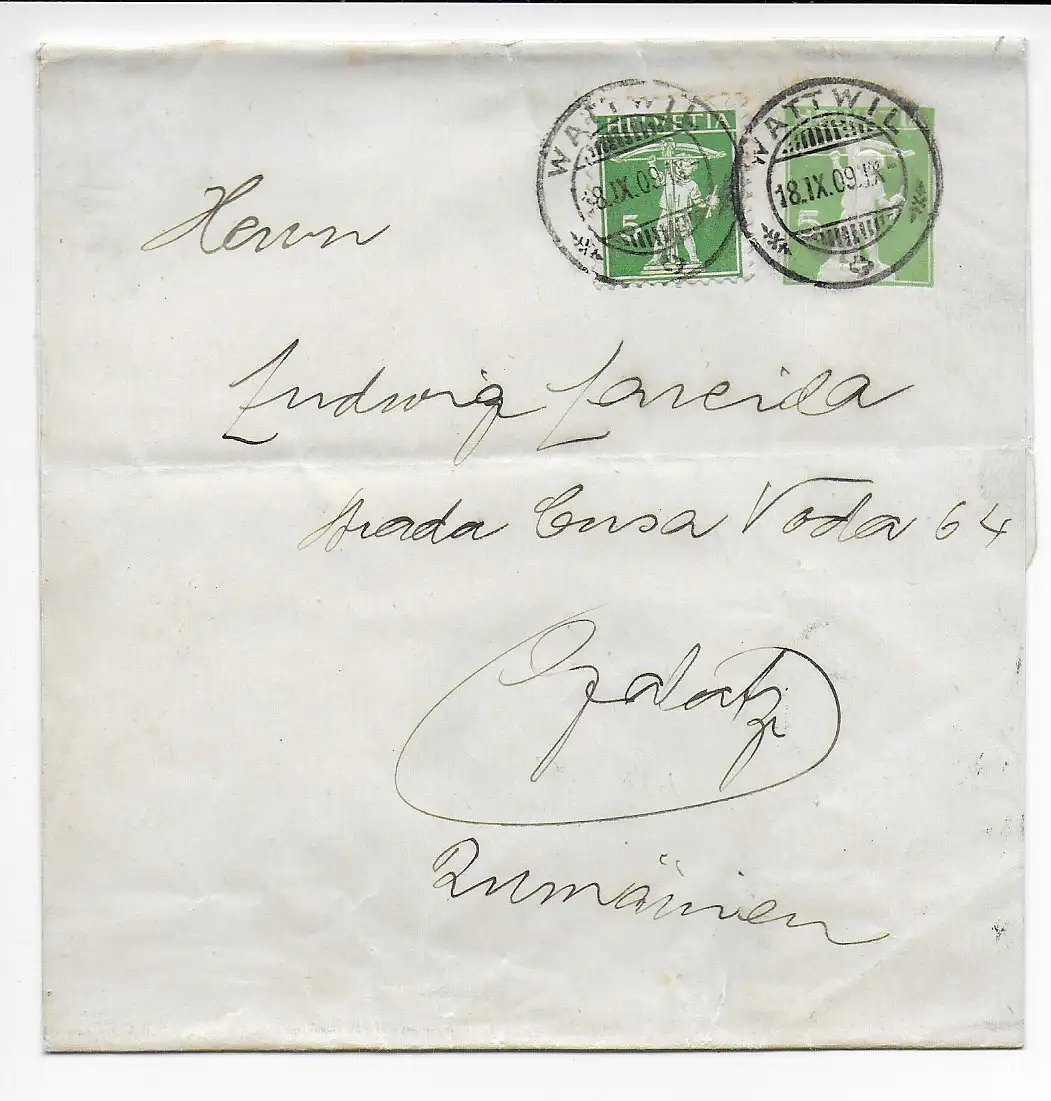 HELVETIA
5
WATTWIL
18.IX.09.IX-
5
WATTWIL
18.IX.09.IX-
Herrn
Ludwig
Strada Cusa Voda 64
Galatz
Rumänien